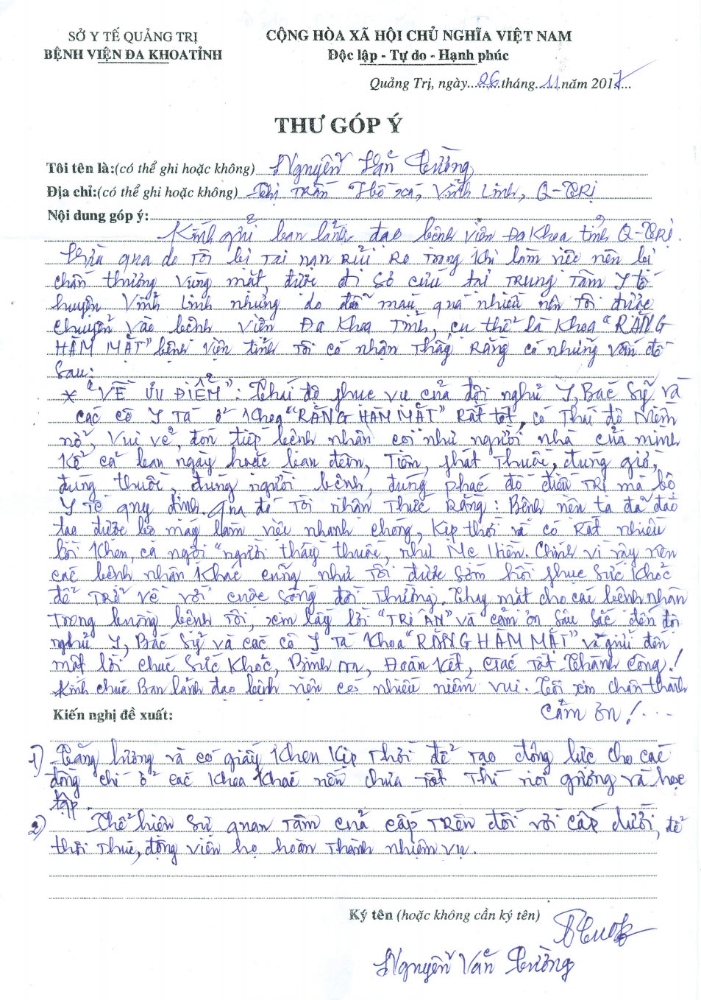 SỞ Y TẾ QUẢNG TRỊ
BỆNH VIỆN ĐA KHOA TỈNH
CỘNG HÒA XÃ HỘI CHỦ NGHĨA VIỆT NAM
Độc lập - Tự do - Hạnh phúc
Quảng Trị, ngày...06.tháng..11.năm 2017...
THƯ GÓP Ý
Tôi tên là:(có thể ghi hoặc không) Nguyễn Văn Cường
Địa chỉ:(có thể ghi hoặc không) Thị Trấn Hồ Xá, Vĩnh Linh, Q-Trị
Nội dung góp ý:
Kính gửi ban lãnh đạo bệnh viện Đa Khoa tỉnh Q-Trị.
Vừa qua do Tôi bị Tai nạn Rủi Ro Trong khi làm việc nên bị
chấn thương vùng mắt, được đi sơ cứu tại TRung Tâm Y tế
huyện Vĩnh Linh nhưng do đổ máu quá nhiều nên Tôi được
chuyển vào bệnh viện Đa Khoa Tỉnh, cụ thể là Khoa "RĂNG
HÀM MẶT" bệnh viện tỉnh Tôi có nhận Thấy Rằng có những vấn đề
Sau:
* "VỀ ƯU ĐIỂM": Thái độ phục vụ của đội nghũ Y, Bác Sỹ và
các cô Y Tá ở Khoa "RĂNG HÀM MẶT" Rất tốt, có Thái độ Niềm
nở, Vui vẻ, đón tiếp bệnh nhân coi như người nhà của mình
Kể cả ban ngày hoặc ban đêm, Tiêm, phát Thuốc, đúng giờ,
đúng thuốc, đúng người bệnh, đúng phác đồ điều TRị mà bộ
Y Tế quy định. Qua đó Tôi nhận Thức Rằng: Bệnh viện ta đã đào
tạo được bộ máy làm việc nhanh chóng, Kịp thời và có Rất nhiều
lời Khen, ca ngợi "người thầy thuốc, như Mẹ Hiền. Chính vì vậy nên
các bệnh nhân Khác cũng như Tôi được sớm hồi phục Sức Khỏe
để TRở Về với cuộc sống đời Thường. Thay mặt cho các bệnh nhân
Trong buồng bệnh Tôi, xem lấy lời "TRi ÂN" và cảm ơn sâu sắc đến đội
nghũ Y, Bác Sỹ và các cô Y Tá Khoa "RĂNG HÀM MẶT" và gửi đến
một lời chúc Sức Khỏe, Bình An, Đoàn Kết, Gặt Tốt Thành Công!
Kính chúc Ban lãnh đạo bệnh viện có nhiều niềm vui. Tôi xin chân thành
Cảm ơn!...
Kiến nghị đề xuất:
1) Tăng lương và có giấy Khen Kịp Thời để Tạo động lực cho các
đồng chí ở các Khoa Khác nếu chưa Tốt Thì noi gương và học
tập.
2) Thể hiện Sự quan Tâm của cấp TRên đối với cấp dưới, để
thôi Thúc, động viên họ hoàn Thành nhiệm vụ.
Ký tên (hoặc không cần ký tên)
Nguyễn Văn Cường